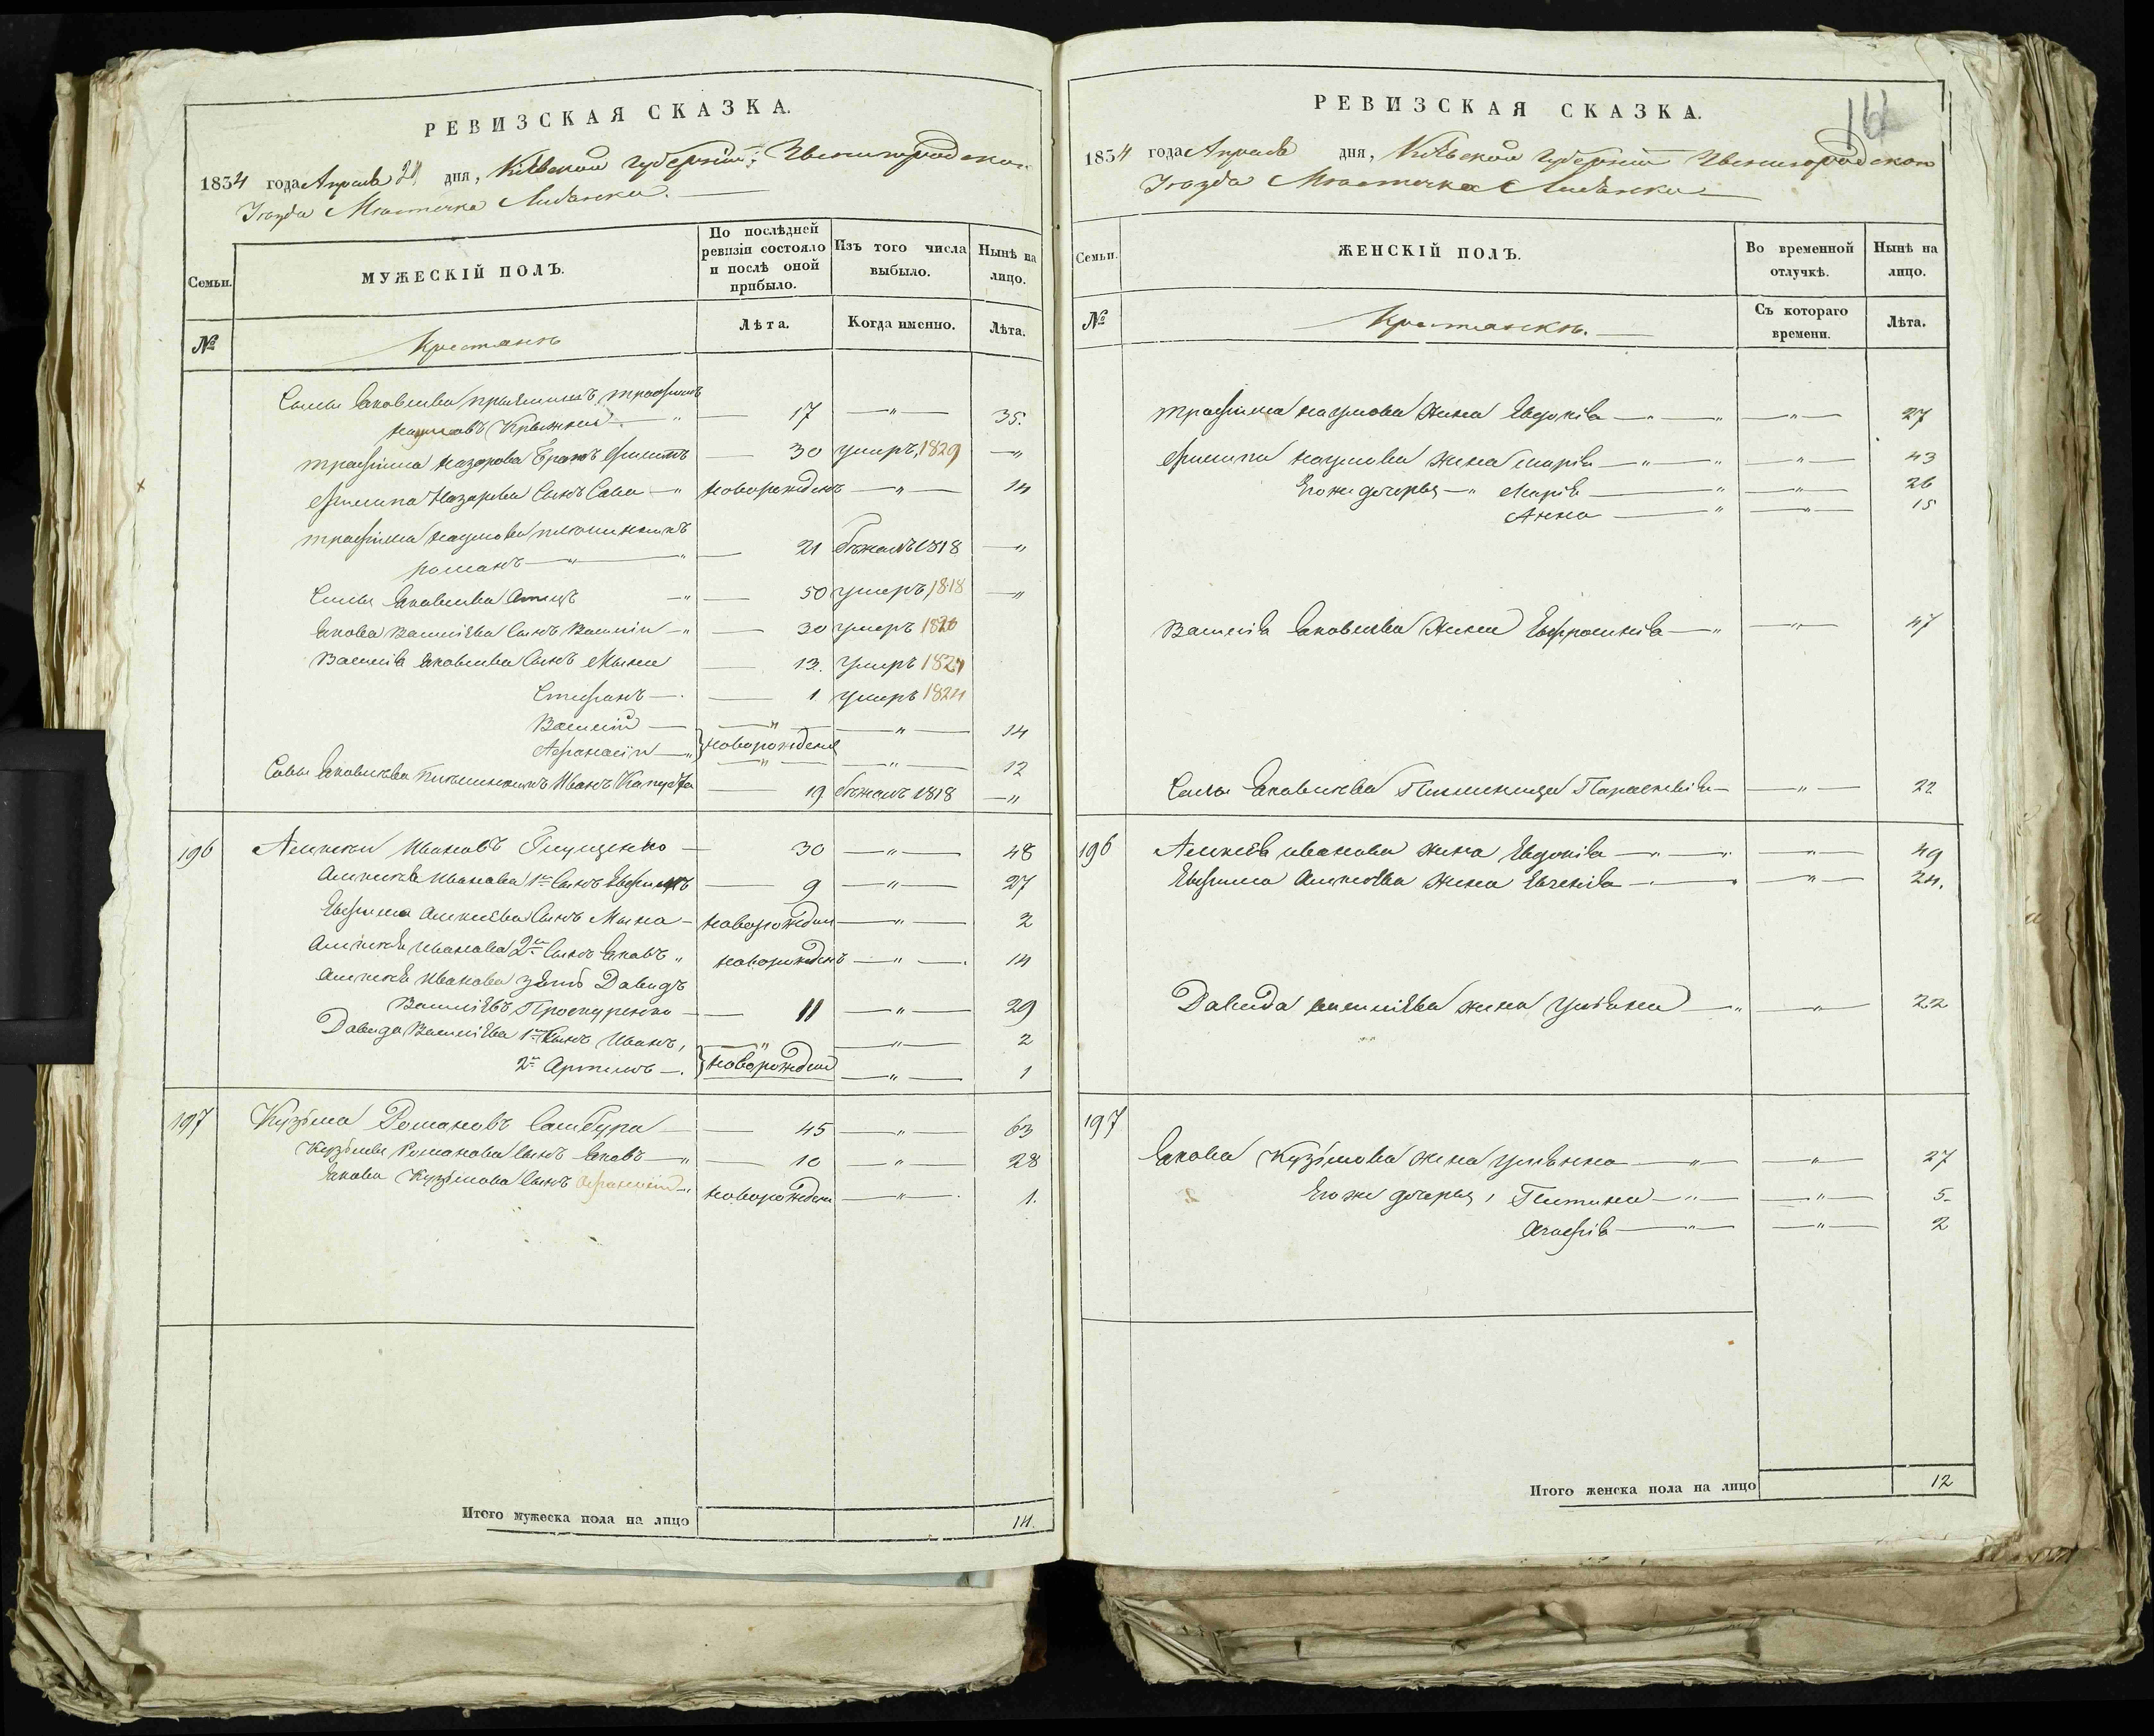 РЕВИЗСКАЯ СКАЗКА.
1834 года Апреля 24 дня, Кіевской губерніи, Звенигородскаго
Уѣзда Мѣстечка Лисянки.
Семьи.
МУЖЕСКІЙ ПОЛЪ.
По послѣдней ревизіи состояло и послѣ оной прибыло.
Изъ того числа выбыло.
Нынѣ на лицо.
№
Крестьянъ
Лѣта.
Когда именно.
Лѣта.
Савы Яковлева Трофимъ
Наумовъ 17 — " — 35.
Трофима Назарова братъ Филипъ — 30 умеръ, 1829 — "
Филипа Назарова Сынъ Сава — " новорожденъ — " — 14
Трофима Наумова племянникъ
романъ — " — " — 21 бѣжалъ 1818 — "
Савы Яковлева Отецъ — " — 50 умеръ 1818 — "
Якова Василіева Сынъ Василій — " — 30 умеръ 1820
Василія Яковлева Сынъ Мына — 13. умеръ 1821
Стефанъ — 1 умеръ 1824
Василій — " — " — 14
Афанасій — " новорожденые — " — 12
Савы Яковлева племянникъ Иванъ Капуста — 19 бѣжалъ 1818 — "
196 Алексѣй Ивановъ Глущенко — 30 — " — 48
Алексѣя Иванова 1й Сынъ Евфимъ — 9 — " — 27
Евфима Алексѣева Сынъ Мына — новорожден — " — 2
Алексѣя Иванова 2й Сынъ Яковъ " новорожденъ — " — 14
Алексѣя Иванова зять Давидъ
Василіевъ Проскуренко — 11 — " — 29
Давида Василіева 1й Сынъ Иванъ, — " — " — 2
2й Артемъ — . новорожден — " — 1
197 Кузьма Романовъ Самбура — 45 — " — 63
Кузьмы Романова Сынъ Яковъ — " — 10 — " — 28
Якова Кузьмова Сынъ Афанасій — новорожден — " — 1.
Итого мужеска пола на лицо 14.
РЕВИЗСКАЯ СКАЗКА.
1834 года Апреля дня, Кіевской губерніи Звенигородскаго
Уѣзда Мѣстечка Лисянки
Семьи.
ЖЕНСКІЙ ПОЛЪ.
Во временной отлучкѣ.
Нынѣ на лицо.
№
Крестьянкъ.
Съ котораго времени.
Лѣта.
Трофима Наумова Жена Евдокія — " — " — " — 27
Филипа Наумова Жена Марія — " — " — " — 43
Егоже дочерья — " Марія — " — " — 26
Анна — " — " — 15
Василія Яковлева Жена Евфросинія — " — " — 47
Савы Яковлева Племянница Параскевія — " — 22
196 Алексѣя Иванова Жена Евдокія — " — " — 49
Евфима Алексѣева Жена Евгенія — " — 24.
Давида Василіева жена Ульяна — " — " — 22
197
Якова Кузьмова жена Ульянна — " — " — 27
Егоже дочерья, — " — " — 5-
Агафія — " — " — 2
Итого женска пола на лицо 12